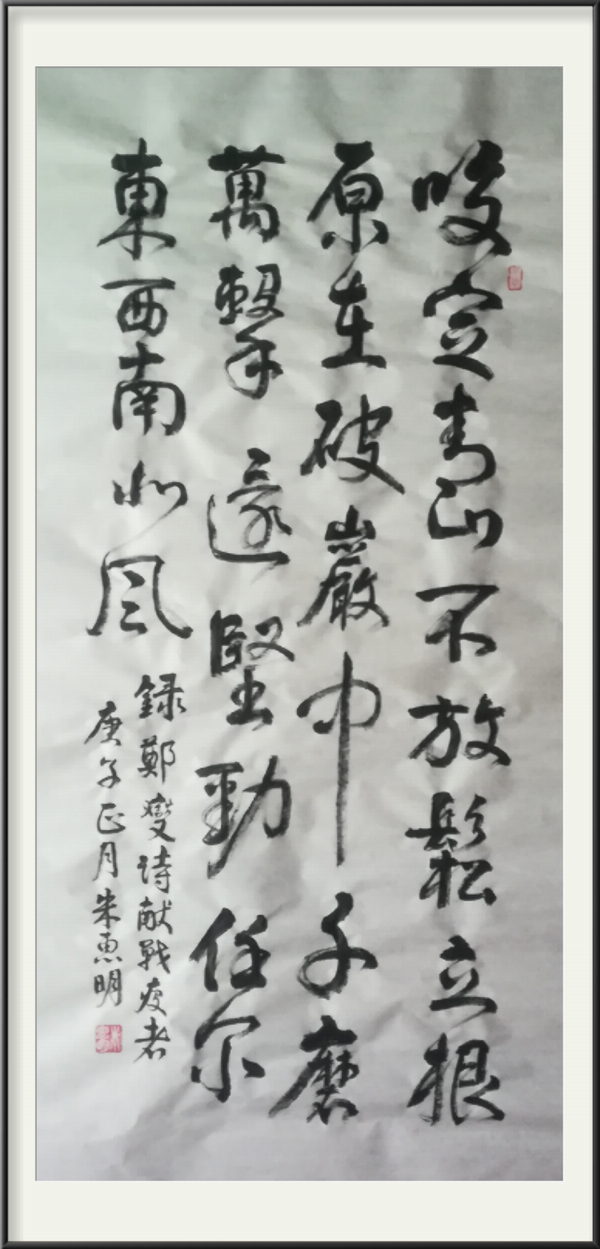 咬定青山不放鬆立根
原在破巖中千磨
萬擊還堅勁任尔
東西南北風
録鄭燮诗献戰疫者
庚子正月朱惠明